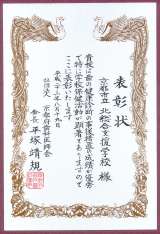 表彰状
京都市立 北総合支援学校 様
貴校は歯の健康診断の事後措置の成績が優秀
で特に学校保健活動が顕著でありますので
ここに表彰いたします
平成二十八年八月十九日
京都府歯科医師会
会長 平塚靖規